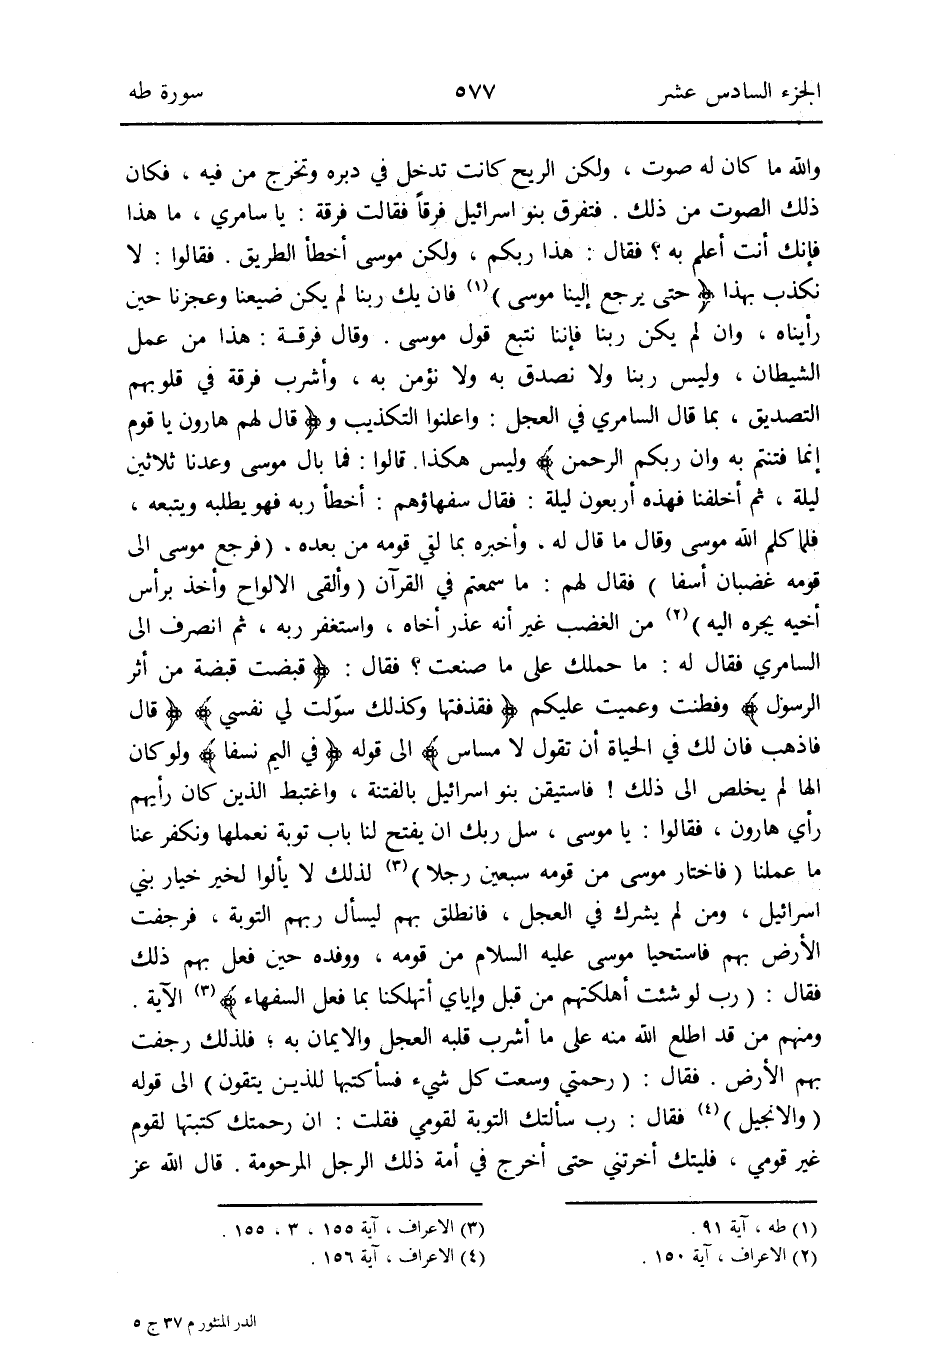 الجزء السادس عشر ٥٧٧ سورة طه
والله ما كان له صوت ، ولكن الريح كانت تدخل في دبره وتخرج من فيه ، فكان
ذلك الصوت من ذلك . فتفرق بنو اسرائيل فرقاً فقالت فرقة : يا سامري ، ما هذا
فإنك أنت أعلم به ؟ فقال : هذا ربكم ، ولكن موسى أخطأ الطريق . فقالوا : لا
نكذب بهذا ﴿ حتى يرجع إلينا موسى )(١) فان يك ربنا لم يكن ضيعنا وعجزنا حين
رأيناه ، وان لم يكن ربنا فإننا نتبع قول موسى . وقال فرقة : هذا من عمل
الشيطان ، وليس ربنا ولا نصدق به ولا نؤمن به ، وأشرب فرقة في قلوبهم
التصديق ، بما قال السامري في العجل : واعلنوا التكذيب و﴿ قال لهم هارون يا قوم
إنما فتنتم به وان ربكم الرحمن ﴾ وليس هكذا. قالوا : فما بال موسى وعدنا ثلاثين
ليلة ، ثم أخلفنا فهذه أربعون ليلة : فقال سفهاؤهم : أخطأ ربه فهو يطلبه ويتبعه ،
فلما كلم الله موسى وقال ما قال له . وأخبره بما لقي قومه من بعده . ( فرجع موسى الى
قومه غضبان أسفا ) فقال لهم : ما سمعتم في القرآن ( وألقى الالواح وأخذ برأس
أخيه يجره اليه )(٢) من الغضب غير أنه عذر أخاه ، واستغفر ربه ، ثم انصرف الى
السامري فقال له : ما حملك على ما صنعت ؟ فقال : ﴿ قبضت قبضة من أثر
الرسول ﴾ وفطنت وعميت عليكم ﴿ فقذفتها وكذلك سوّلت لي نفسي ﴾ ﴿ قال
فاذهب فان لك في الحياة أن تقول لا مساس ﴾ الى قوله ﴿ في اليم نسفا ﴾ ولو كان
الها لم يخلص الى ذلك ! فاستيقن بنو اسرائيل بالفتنة ، واغتبط الذين كان رأيهم
رأي هارون ، فقالوا : يا موسى ، سل ربك ان يفتح لنا باب توبة نعملها ونكفر عنا
ما عملنا ( فاختار موسى من قومه سبعين رجلا )(٣) لذلك لا يألوا لخير خيار بني
اسرائيل ، ومن لم يشرك في العجل ، فانطلق بهم ليسأل ربهم التوبة ، فرجفت
الأرض بهم فاستحيا موسى عليه السلام من قومه ، ووفده حين فعل بهم ذلك
فقال : ( رب لو شئت أهلكتهم من قبل وإياي أتهلكنا بما فعل السفهاء ﴾(٣) الآية .
ومنهم من قد اطلع الله منه على ما أشرب قلبه العجل والايمان به ؛ فلذلك رجفت
بهم الأرض . فقال : ( رحمتي وسعت كل شيء فسأكتبها للذين يتقون ) الى قوله
( والانجيل )(٤) فقال : رب سألتك التوبة لقومي فقلت : ان رحمتك كتبتها لقوم
غير قومي ، فليتك أخرتني حتى أخرج في أمة ذلك الرجل المرحومة . قال الله عز
(١) طه ، آية ٩١ .
(٢) الاعراف ، آية ١٥٠ .
(٣) الاعراف ، آية ١٥٥ ، ٣ ، ١٥٥ .
(٤) الاعراف ، آية ١٥٦ .
الدر المنثور م ٣٧ ج ٥